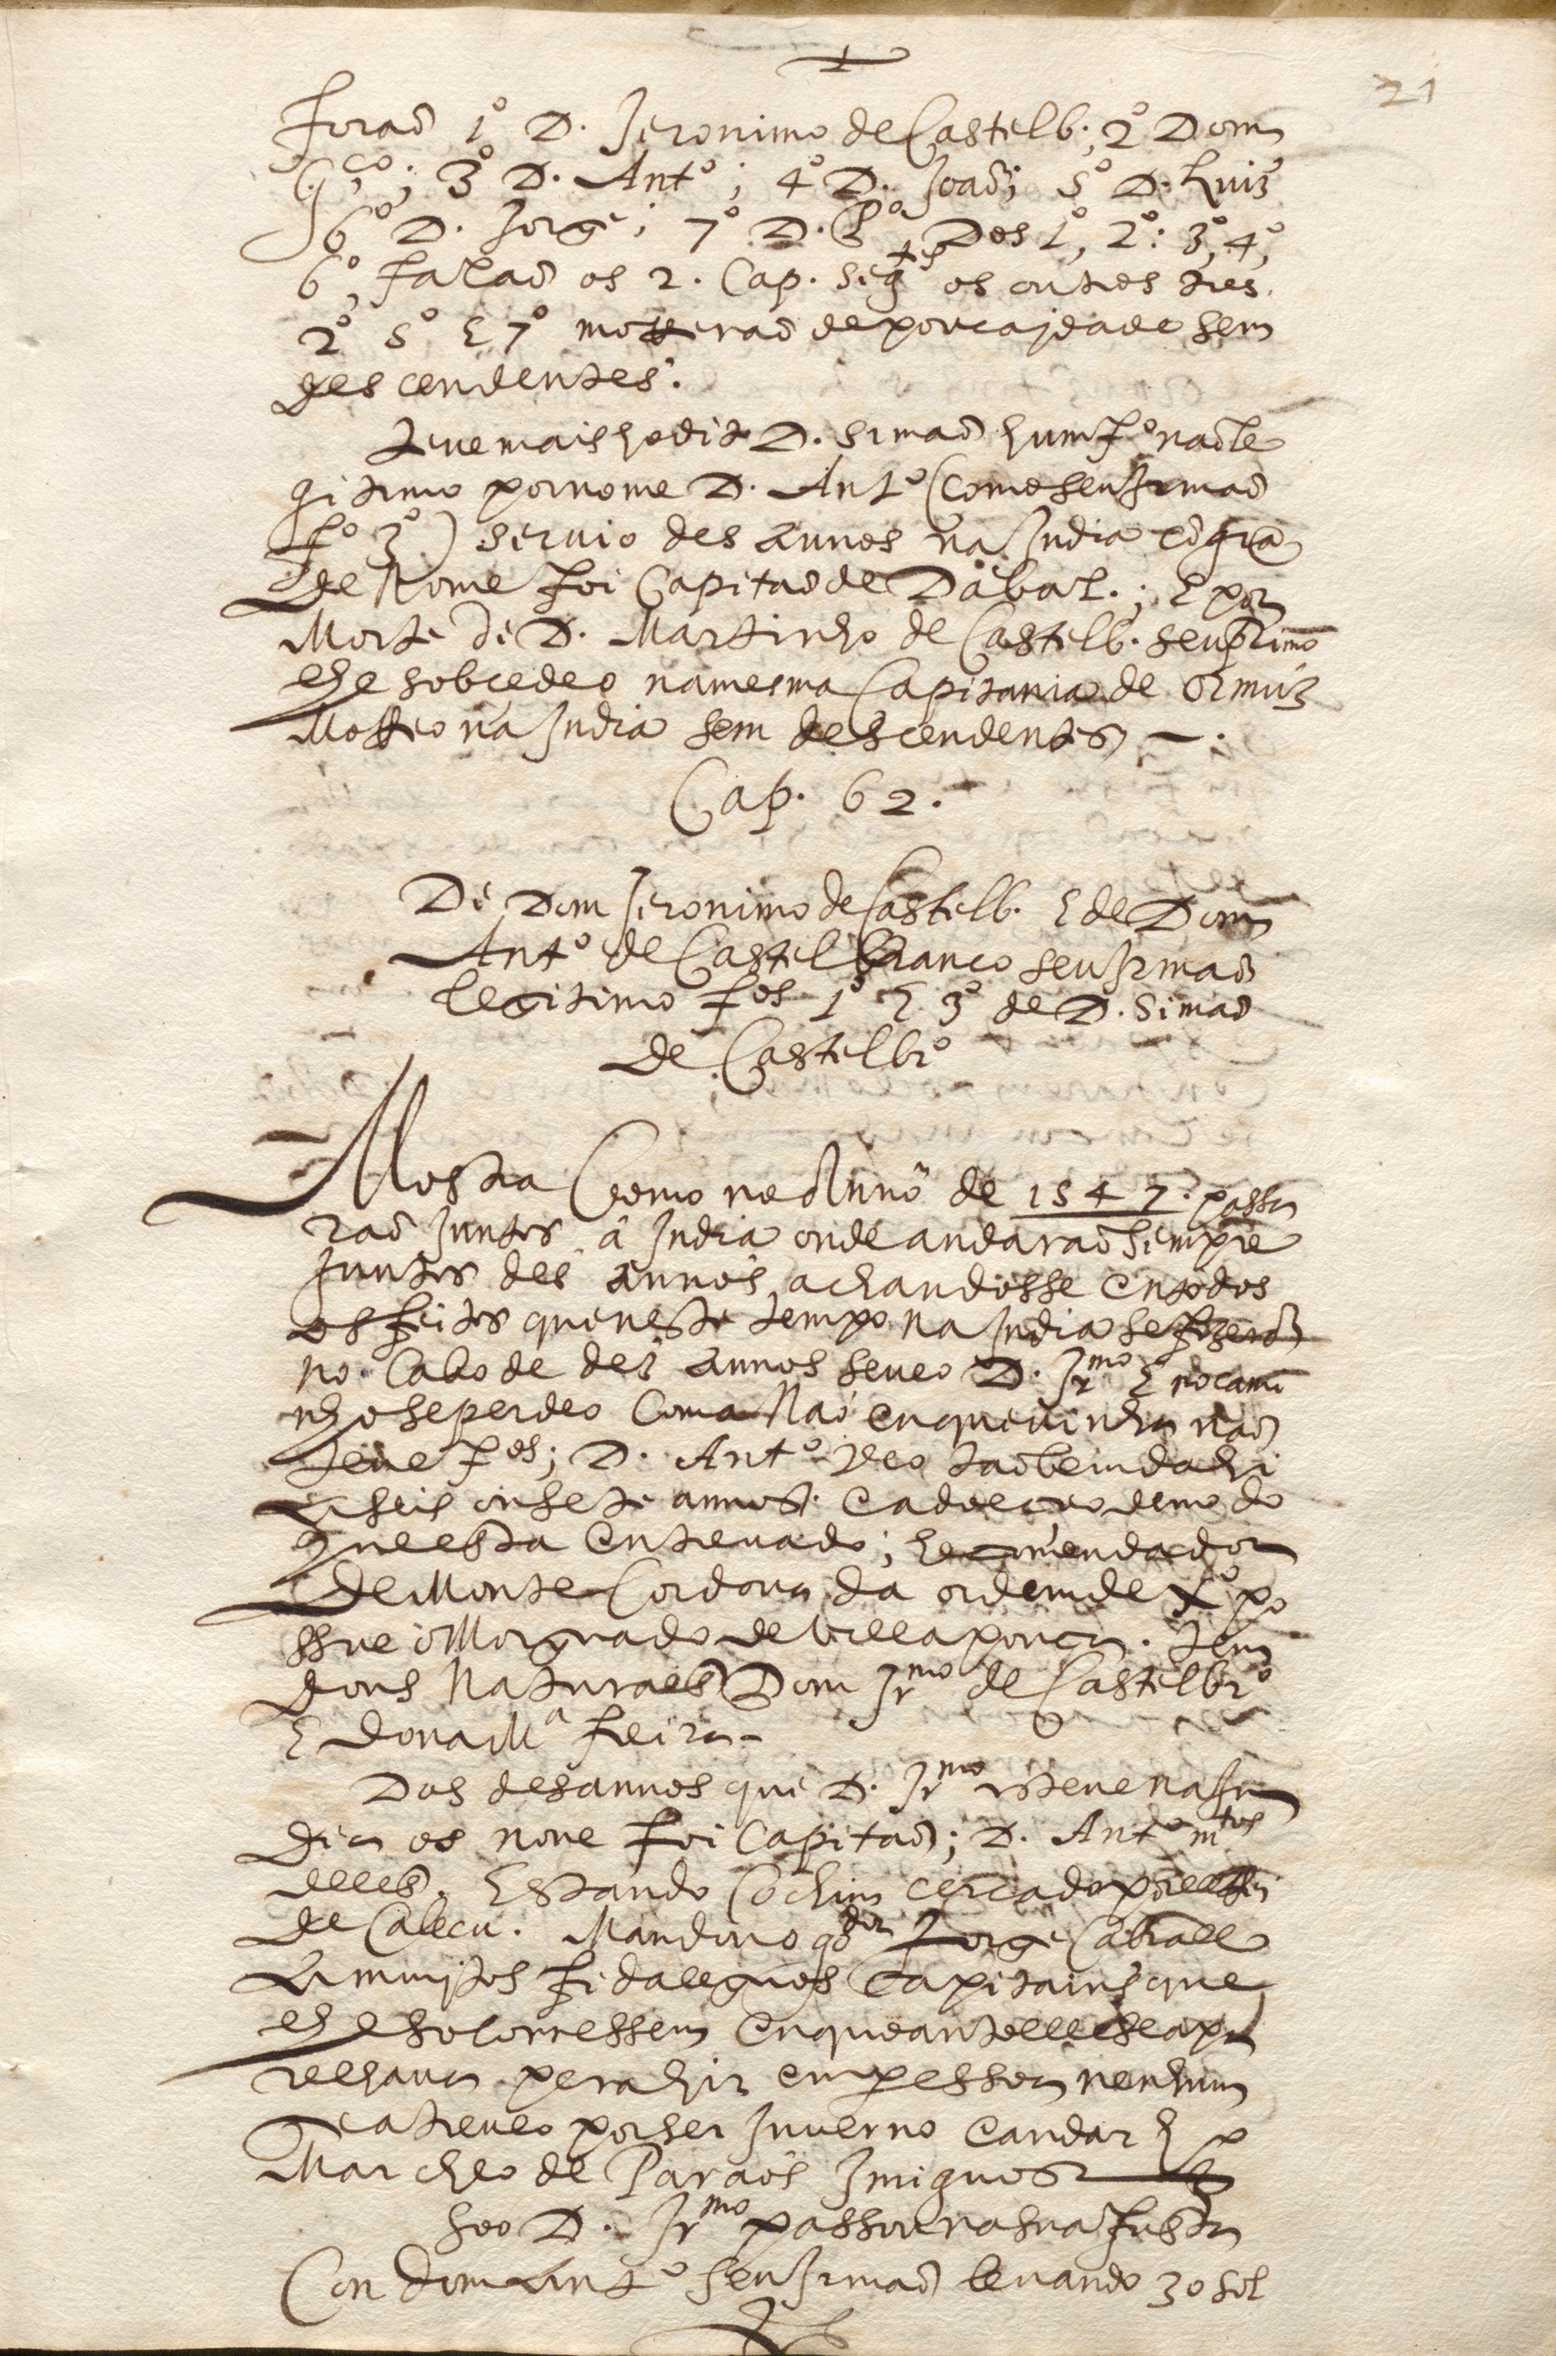 21
forão 1º D. Jeronimo de Castelb.; 2º Dom
Gco; 3º D. Antº; 4º D. João; 5º D. Luis
6º D. Jorge; 7º D. Pº. Dos 1º, 2º: 3º, 4º,
6º, falão os 2. Cap. segtes os outros tres.
2º 5º E 7º morrerão de pouca jdade sem
descendentes.
teue mais ho dito D. Simão hum fº não le
gitimo por nome D. Antº (como seu Irmão
fº 3º) seruio des annos na India cõ gra
de Nome foi Capitão de Dabal.; E por
Morte de D. Martinho de Castelb. seu primo
lhe sobcedeo na mesma Capitania de Ormuz
Morreo na India sem descendentes —.
Cap. 62.
De Dom Jeronimo de Castelb. E de Dom
Antº de Castelbranco seu Irmão
legitimo fos 1º E 3º de D. Simão
de Castelbrº
Mostra Como no Anno de 1547. passa
rão juntos â India onde andarão sempre
Juntos des annos achandosse en todos
os feitos que neste tempo na India se fizerão
no Cabo de des annos se ueo D. Jrmo E no cami
nho se perdeo Com a Nao en que uinha não
teue fos; D. Antº ueo também dahi
A seis ou sete annos. E adoeceo de modo
que esta entreuado; he comendador
de Monte Cordoua da ordem de Xº po
ssue o Morguado de Villa pouca. tem
dous Naturaes Dom Jrmo de Castelbrº
E dona Mª freira -
Dos des annos que D. Jrmo esteue na In
dia os noue foi Capitão; D. Antº mtos
delles. Estando Cochim cercado por elRei
de Calecu. Mandou o gdor Jorge Cabral
A muitos fidalguos Capitains que
lhe socorressem en quanto elle se apa
relhaua pera hir em pessoa nenhum
se atreueo por ser Inuerno E andar h
Mar cheo de Paraos Imiguos
Soo D. Jrmo passou na sua fusta
Con dom Antº seu Irmão leuando 30 sol